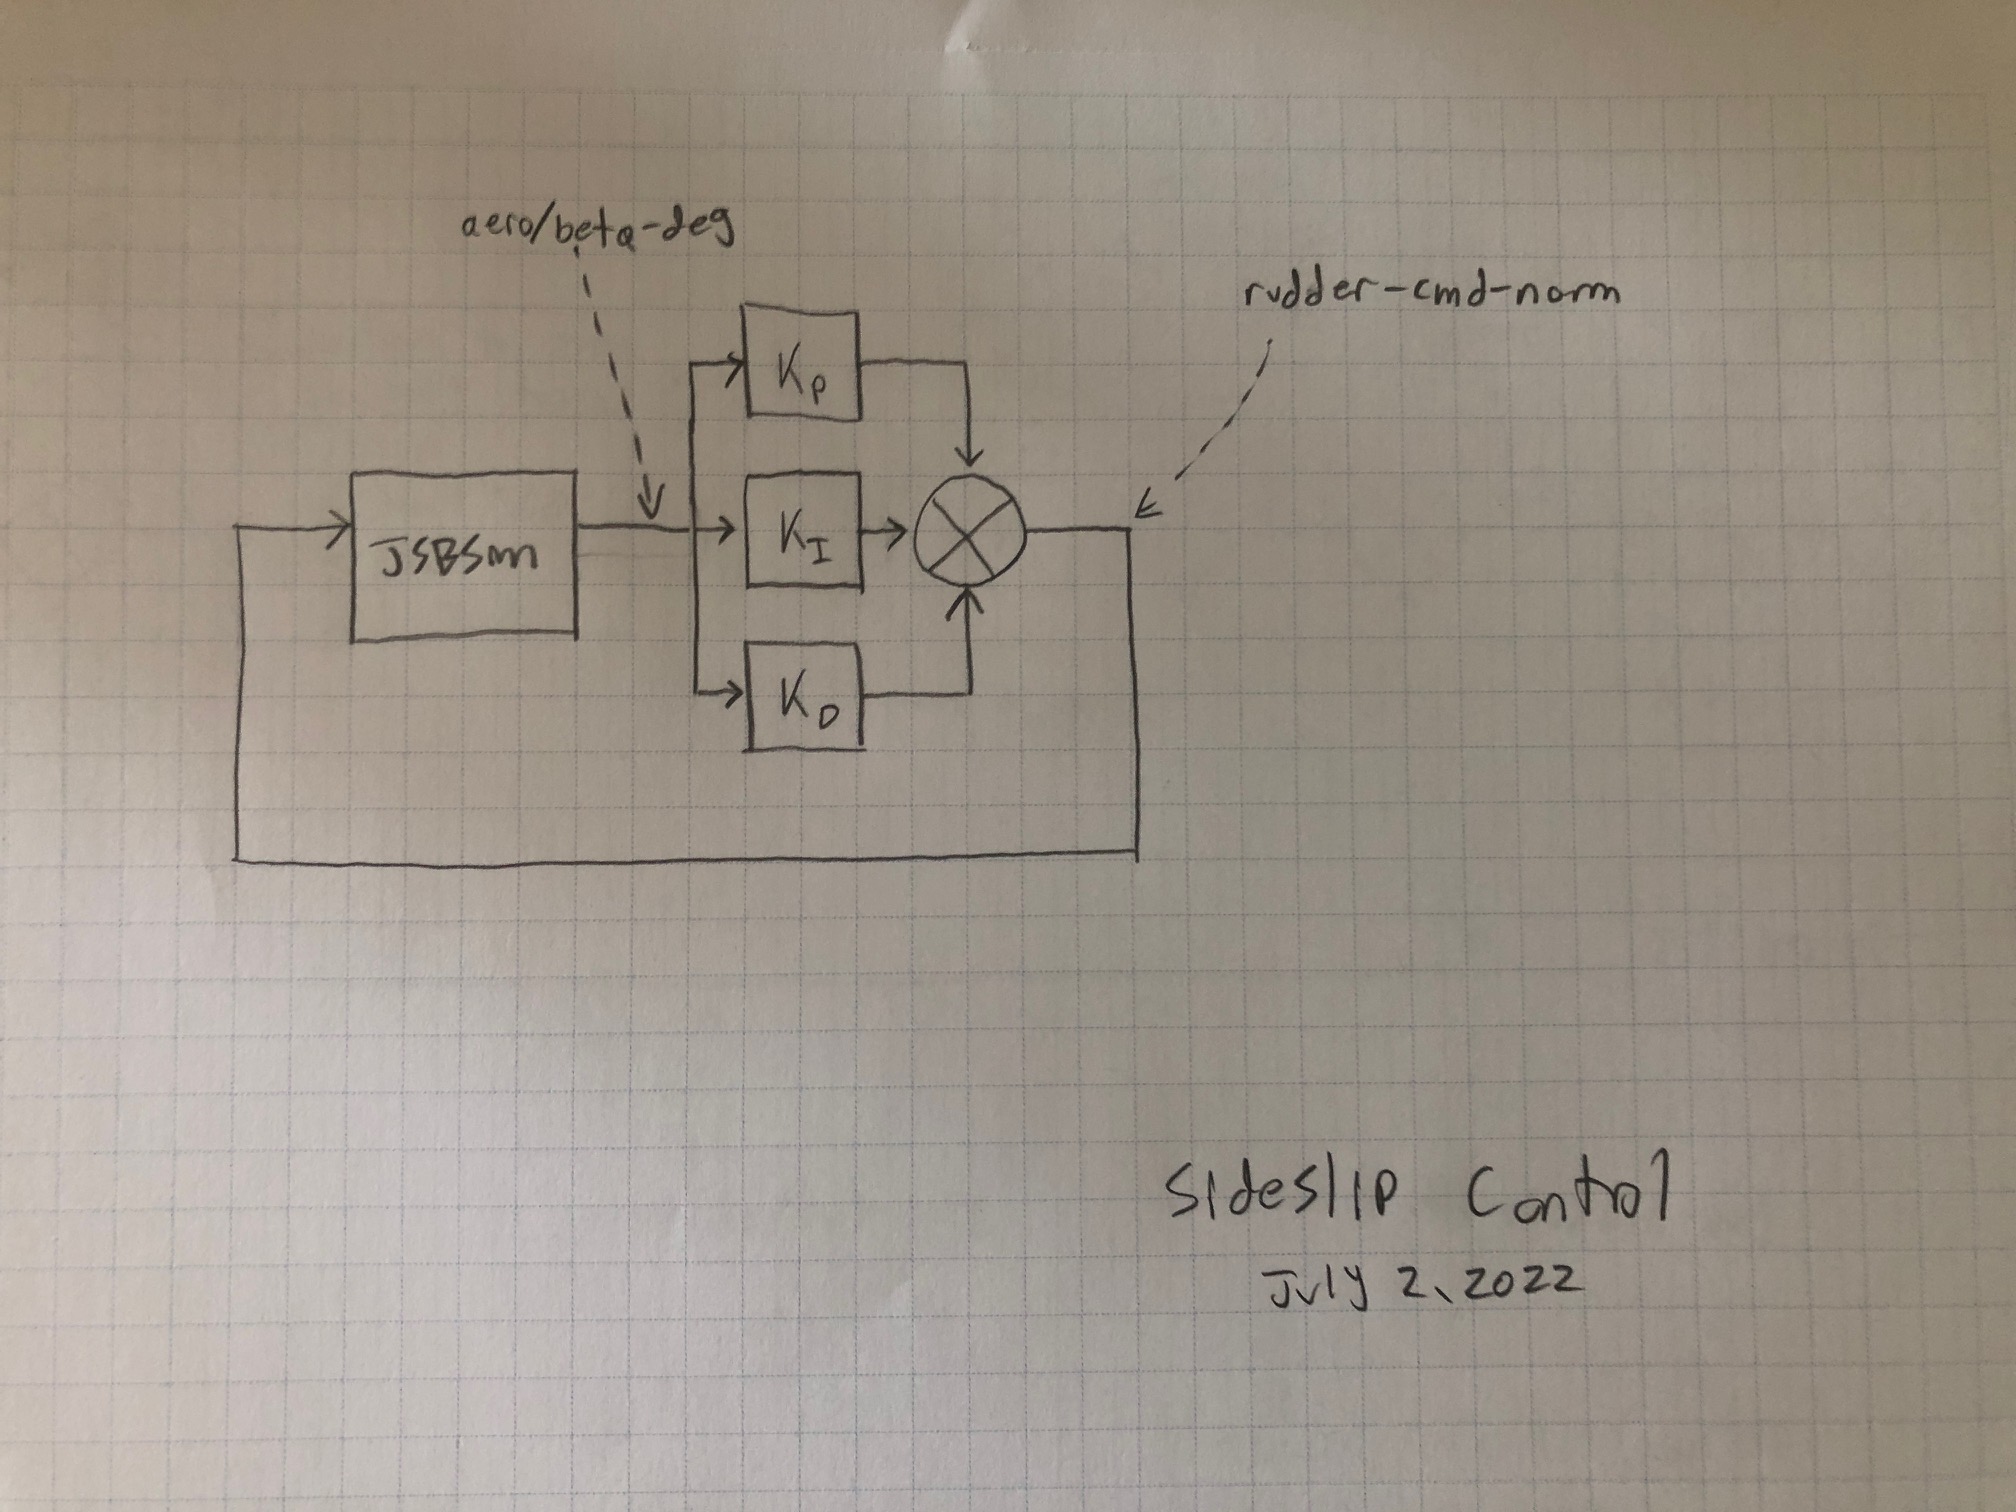 aero/beta-deg
rudder-cmd-norm
KP
JSBSim
KI
KD
Sideslip Control
July 2, 2022